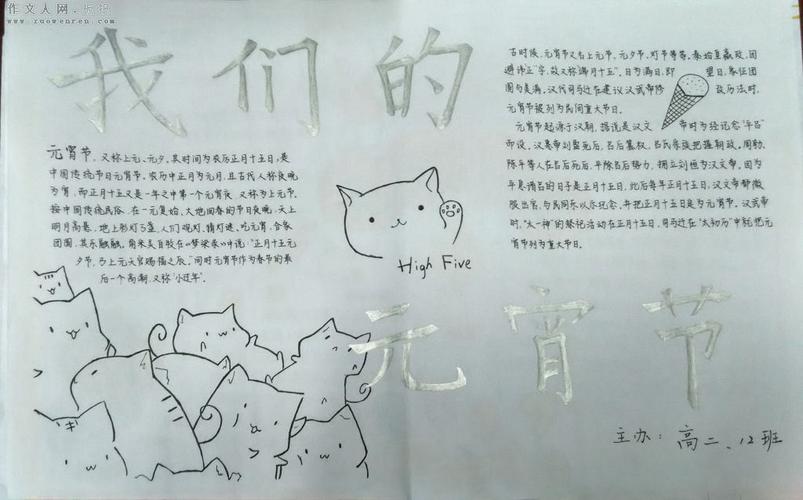 作文人网.板报
www.zuowenren.com
我们的
元宵节，又称上元、元夕，其时间为农历正月十五日，是
中国传统节日元宵节。农历中正月为元月，且古代人称夜晚
为宵，而正月十五又是一年之中第一个元宵夜 又称为上元节。
按中国传统民俗，在一元复始，大地回春的节日夜晚，天上
明月高悬，地上彩灯万盏，人们观灯、猜灯谜、吃元宵、合家
团圆、其乐融融。南宋吴自牧在《梦梁录》中说："正月十五元
夕节，乃上元天官赐福之辰。"同时元宵节作为春节的最
后一个高潮，又称"小过年"。
High Five
古时候，元宵节又名上元节、元夕节、灯节等等。秦始皇嬴政，因
避讳"正"字，故又称"端月十五"。日为满日，即望日，象征团
团圆美满。汉代司马迁在建议汉武帝修改历法时，
元宵节被列为民间重大节日。
元宵节起源于汉朝，据说是汉文帝时为纪念"平吕"
而设。汉惠帝刘盈死后，吕后篡权，吕氏宗族把握朝政。周勃、
陈平等人在吕后死后，平除吕后势力，拥立刘恒为汉文帝。因为
平息诸吕的日子是正月十五日，此后每年正月十五日，汉文帝都微
服出宫，与民同乐以示纪念。并把正月十五日定为元宵节。汉武帝
时，"太一神"的祭祀活动在正月十五日，司马迁在"太初历"中就把元
宵节列为重大节日。
元宵节
主办：高二、12班